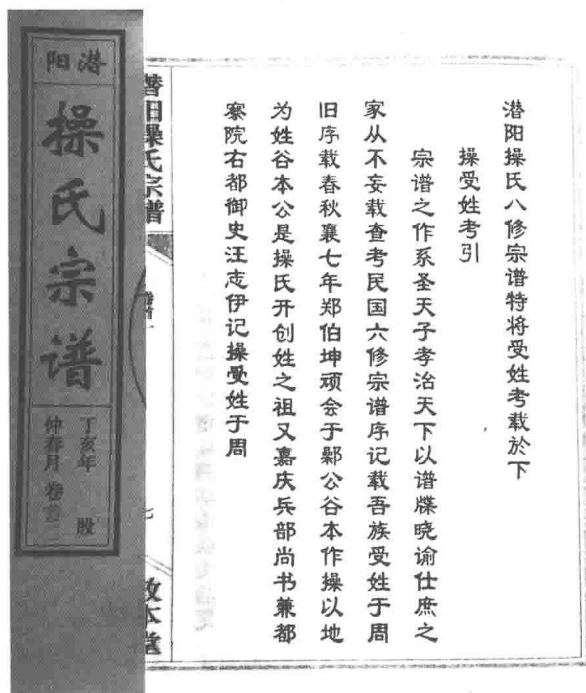 潜阳操氏八修宗谱特将受姓考载於下
操受姓考引
宗谱之作系圣天子孝治天下以谱牒晓谕仕庶之
家从不妄载查考民国六修宗谱序记载吾族受姓于周
旧序载春秋襄七年郑伯坤顽会于鄵公谷本作操以地
为姓谷本公是操氏开创姓之祖又嘉庆兵部尚书兼都
察院右都御史汪志伊记操受姓于周
潜阳操氏宗谱
七
敦本堂
潜阳
操氏宗谱
丁亥年 股
仲春月 卷首二